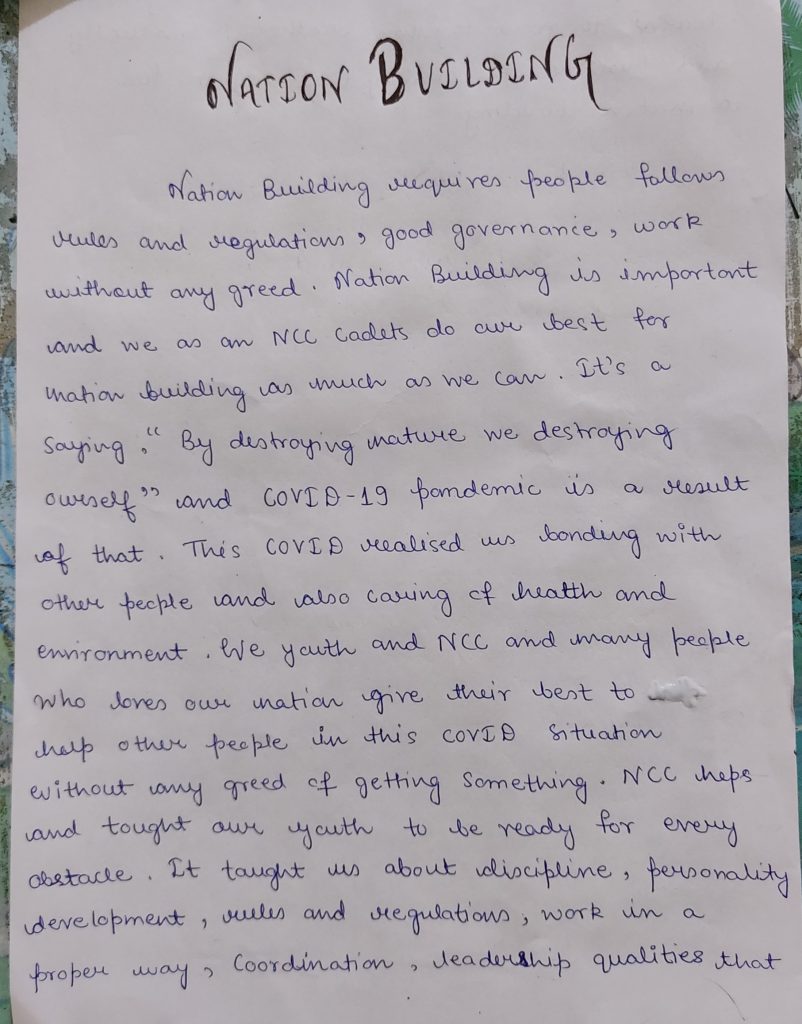 NATION BUILDING
Nation Building requires people follows
rules and regulations, good governance, work
without any greed. Nation Building is important
and we as an NCC Cadets do our best for
nation building as much as we can. It's a
Saying, " By destroying nature we destroying
ourself" and COVID-19 pandemic is a result
of that. This COVID realised us bonding with
other people and also caring of health and
environment. We youth and NCC and many people
who loves our nation give their best to
help other people in this COVID Situation
without any greed of getting Something. NCC heps
and tought our youth to be ready for every
obstacle. It taught us about discipline, personality
development, rules and regulations, work in a
proper way, Coordination, leadership qualities that